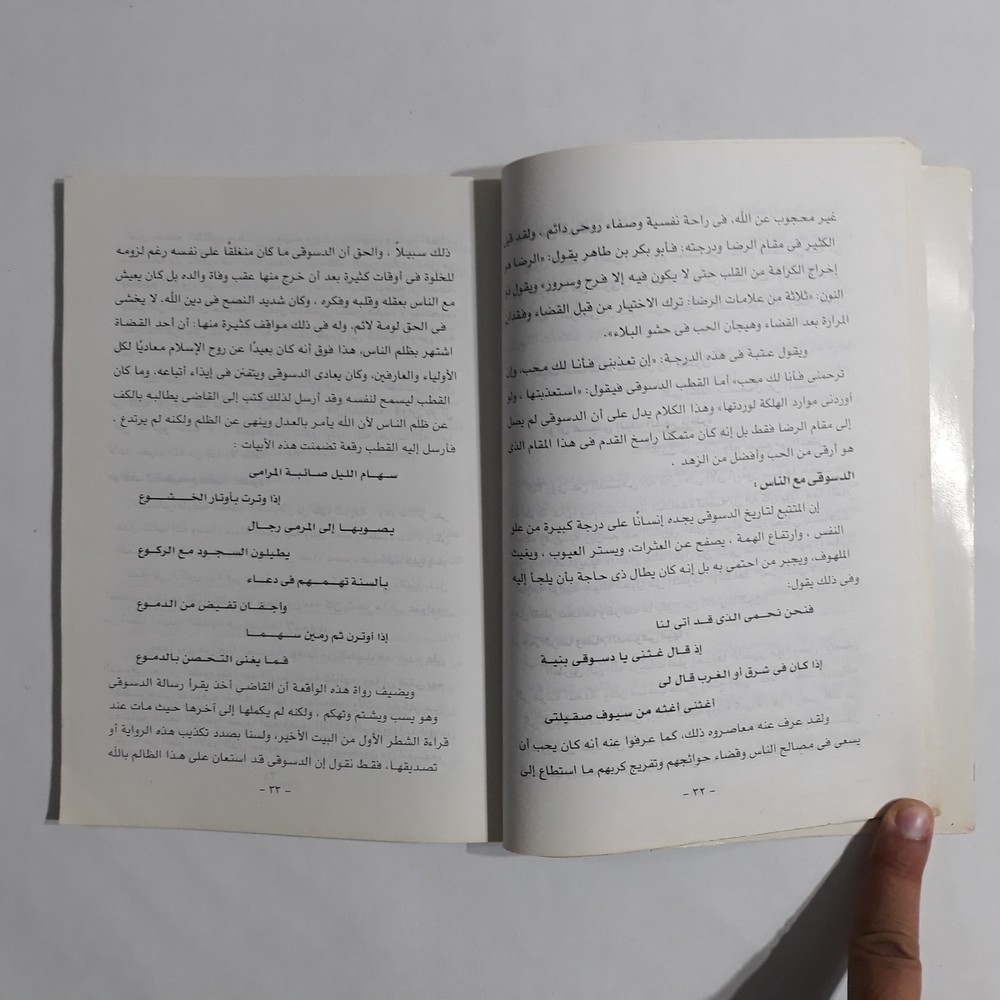 غير محجوب عن الله، فى راحة نفسية وصفاء روحى دائم ، ولقد
الكثير فى مقام الرضا ودرجته: فأبو بكر بن طاهر يقول: «الرضا هو
إخراج الكراهة من القلب حتى لا يكون فيه إلا فرح وسرور» ويقول
النون: «ثلاثة من علامات الرضا: ترك الاختيار من قبل القضاء وفقدان
المرارة بعد القضاء وهيجان الحب فى حشو البلاء».
ويقول عتبة فى هذه الدرجة: «إن تعذبنى فأنا لك محب، وإن
ترحمنى فأنا لك محب» أما القطب الدسوقى فيقول: «استعذبتها ، ولو
أوردنى موارد الهلكة لوردتها» وهذا الكلام يدل على أن الدسوقى لم يصل
إلى مقام الرضا فقط بل إنه كان متمكنًا راسخ القدم فى هذا المقام الذى
هو أرقى من الحب وأفضل من الزهد .
الدسوقى مع الناس :
إن المتتبع لتاريخ الدسوقى يجده إنسانًا على درجة كبيرة من علو
النفس ، وارتفاع الهمة ، يصفح عن العثرات، ويستر العيوب ، ويغيث
الملهوف، ويجبر من احتمى به بل إنه كان يطال ذى حاجة بأن يلجأ إليه
وفى ذلك يقول:
فنحن نحمى الذى قد أتى لنا
إذ قال غثنى يا دسوقى بنية
إذا كان فى شرق أو الغرب قال لى
أغثنى أغثه من سيوف صقيلتى
ولقد عرف عنه معاصروه ذلك، كما عرفوا عنه أنه كان يحب أن
يسعى فى مصالح الناس وقضاء حوائجهم وتفريج كربهم ما استطاع إلى
- ٣٢ -
ذلك سبيلاً ، والحق أن الدسوقى ما كان منغلقًا على نفسه رغم لزومه
للخلوة فى أوقات كثيرة بعد أن خرج منها عقب وفاة والده بل كان يعيش
مع الناس بعقله وقلبه وفكره ، وكان شديد النصح فى دين الله. لا يخشى
فى الحق لومة لائم، وله فى ذلك مواقف كثيرة منها: أن أحد القضاة
اشتهر بظلم الناس، هذا فوق أنه كان بعيدًا عن روح الإسلام معاديًا لكل
الأولياء والعارفين، وكان يعادى الدسوقى ويتفنن فى إيذاء أتباعه. وما كان
القطب ليسمح لنفسه وقد أرسل لذلك كتب إلى القاضى يطالبه بالكف
عن ظلم الناس لأن الله يأمر بالعدل وينهى عن الظلم ولكنه لم يرتدع .
فأرسل إليه القطب رقعة تضمنت هذه الأبيات :
سهام الليل صائبة المرامى
إذا وترت بأوتار الخشوع
يصوبها إلى المرمى رجال
يطيلون السجود مع الركوع
بألسنة تهمهم فى دعاء
وإجفان تفيض من الدموع
إذا أوترن ثم رمين سهما
فما يغنى التحصن بالدموع
ويضيف رواة هذه الواقعة أن القاضى أخذ يقرأ رسالة الدسوقى
وهو يسب ويشتم وتهكم ، ولكنه لم يكملها إلى آخرها حيث مات عند
قراءة الشطر الأول من البيت الأخير، ولسنا بصدد تكذيب هذه الرواية أو
تصديقها، فقط نقول إن الدسوقى قد استعان على هذا الظالم بالله
- ٣٣ -